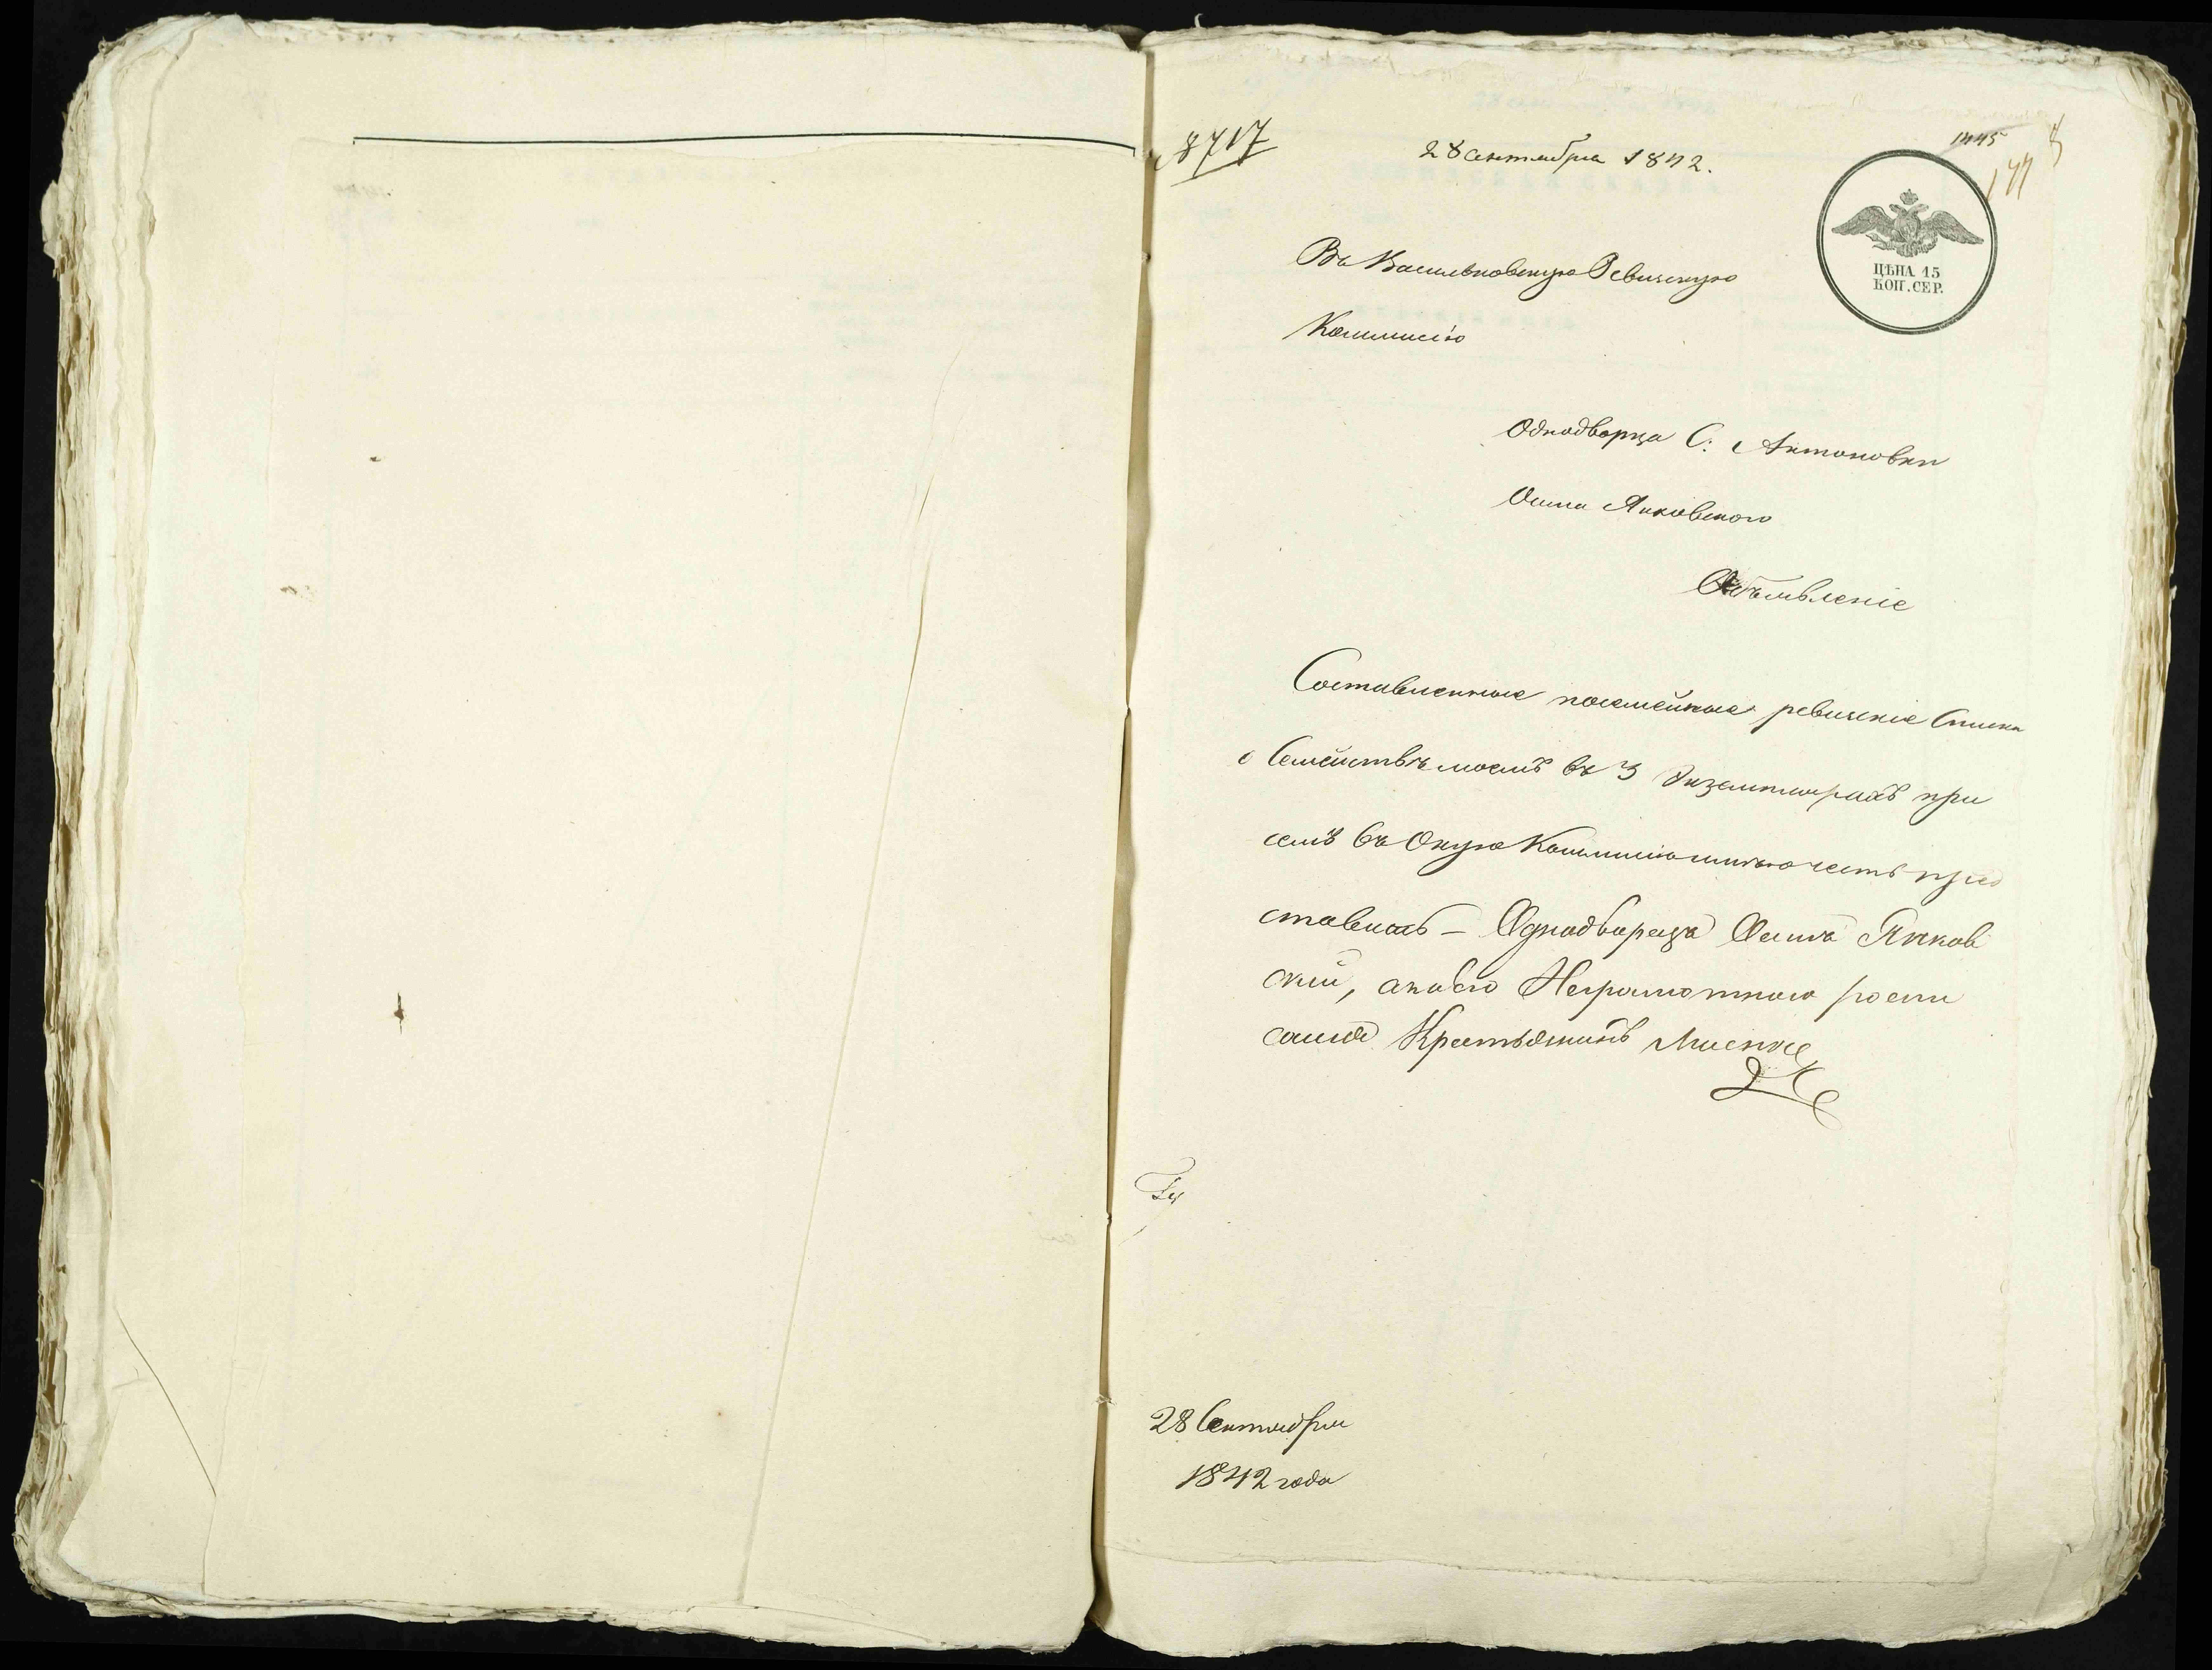 8717
28 сентября 1842.
1445
ЦѢНА 15
КОП. СЕР.
Въ Васильковскую Ревизскую
Коммисію
Однодворца С: Антоновки
Осипа Янковского
Объявленіе
Составленные посемейные ревизскіе Списки
о Семействѣ моемъ въ 3 Экземплярахъ при
семъ въ Оную Коммисію имѣю честь пред
ставить – Однодворецъ Осипъ Янков
скій, а за его Неграмотного роспи
сался Крестьянинъ
28 Сентября
1842 года